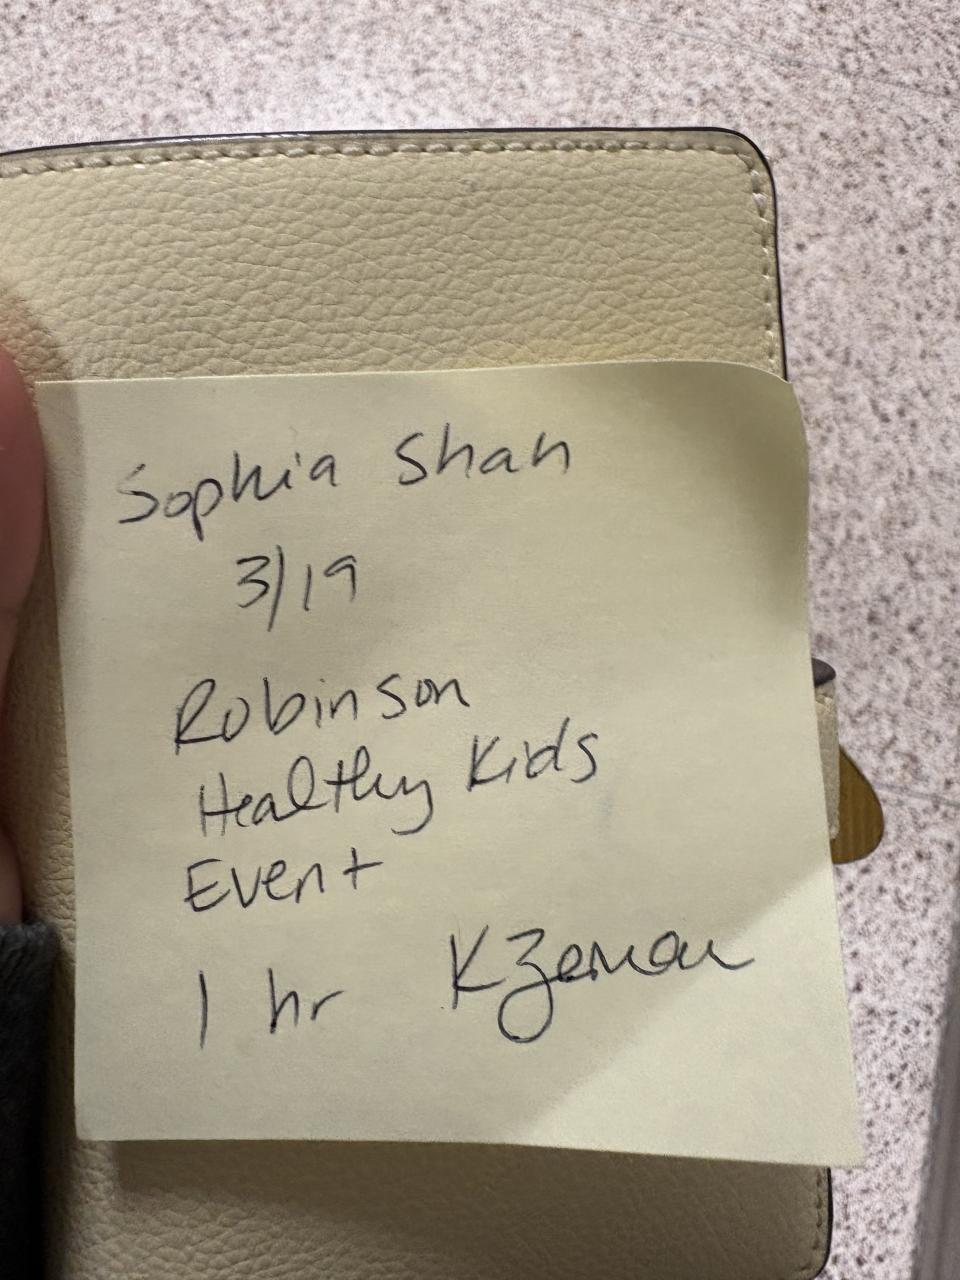 Sophia Shah
3/19
Robinson
Healthy Kids
Event
1 hr KZeman